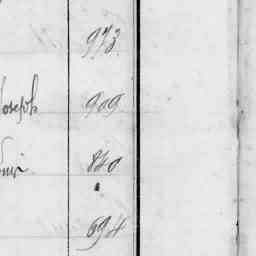 973
Joseph 909
840
694